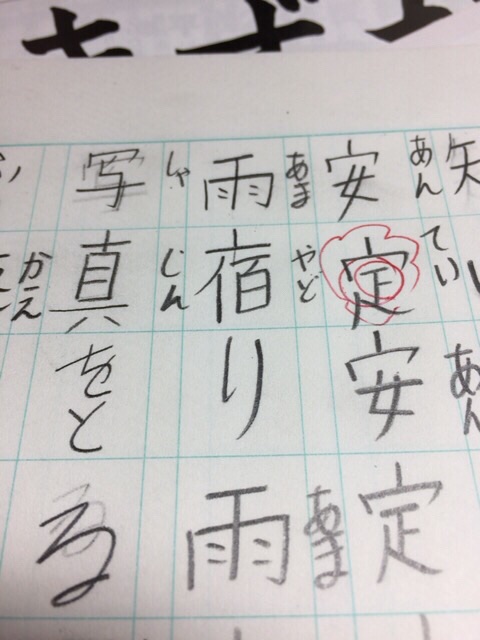 あんてい あん
安定安定
あまやど あま
雨宿り雨
しゃじん
写真をとる
かえ